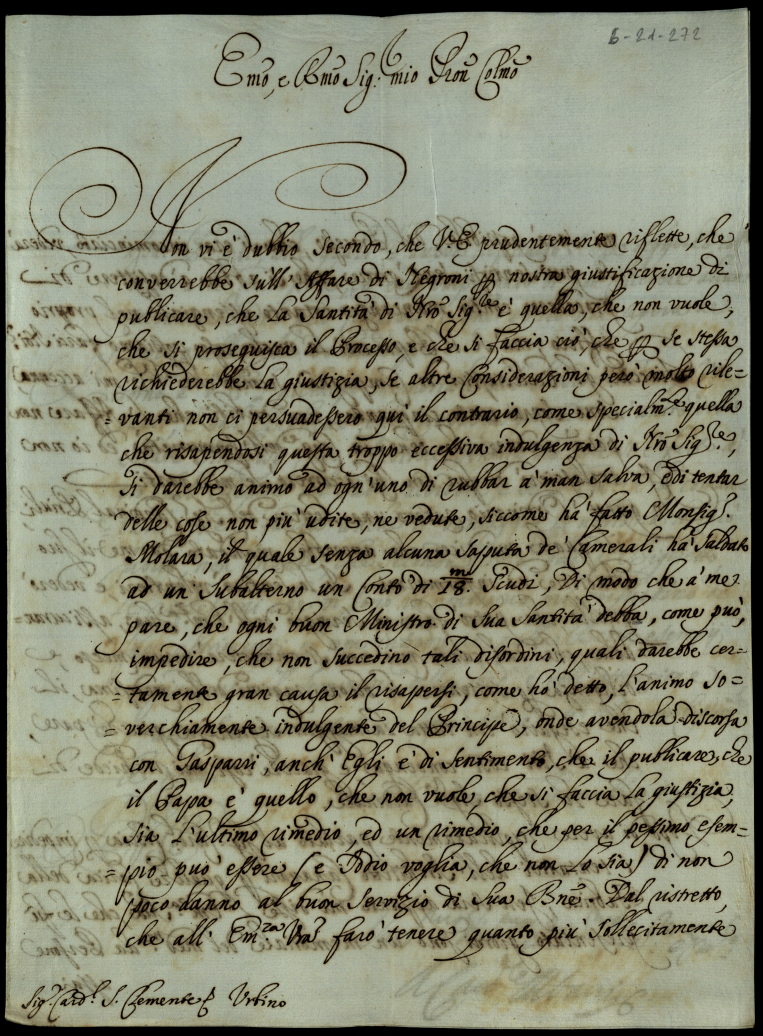 6-21-272
Emo, e Rmo Sig.r mio Pron Colmo
Non vi è dubbio secondo, che V.E. prudentemente riflette, che
converrebbe sull' Affare di Negroni p nostra giustificazione di
publicare, che La Santità di Nro Sig.re è quella, che non vuole,
che si proseguisca il Processo, e che si faccia ciò, che p se stessa
richiederebbe La giustizia, se altre Considerazioni però molto rile=
=vanti non ci persuadessero qui il contrario, come specialm.te quella
che risapendosi questa troppo eccessiva indulgenza di Nro Sig.re,
si darebbe animo ad ogn' uno di rubbar à man salva, e di tentar
delle cose non più udite, ne vedute, siccome hà fatto Monsig.r
Molara, il quale senza alcuna saputa de' Camerali hà saldato
ad un Subalterno un Conto di 18.m Scudi, Di modo che à me
pare, che ogni buon Ministro di Sua Santità debba, come può,
impedire, che non succedino tali disordini, quali darebbe cer=
=tamente gran causa il risapersi, come hò detto, L'animo so=
=verchiamente indulgente del Principe, onde avendola discorsa
con Gasparri, anch' Egli è di sentimento, che il publicare, che
il Papa è quello, che non vuole, che si faccia La giustizia,
sia L'ultimo rimedio, ed un rimedio, che per il pessimo esem=
=pio può essere (e Iddio voglia, che non Lo sia) di non
poco danno al buon Servizio di Sua Bne. Dal ristretto,
che all' Em.za Vra farò tenere quanto più sollecitamente
Sig.r Card.l S. Clemente Urbino